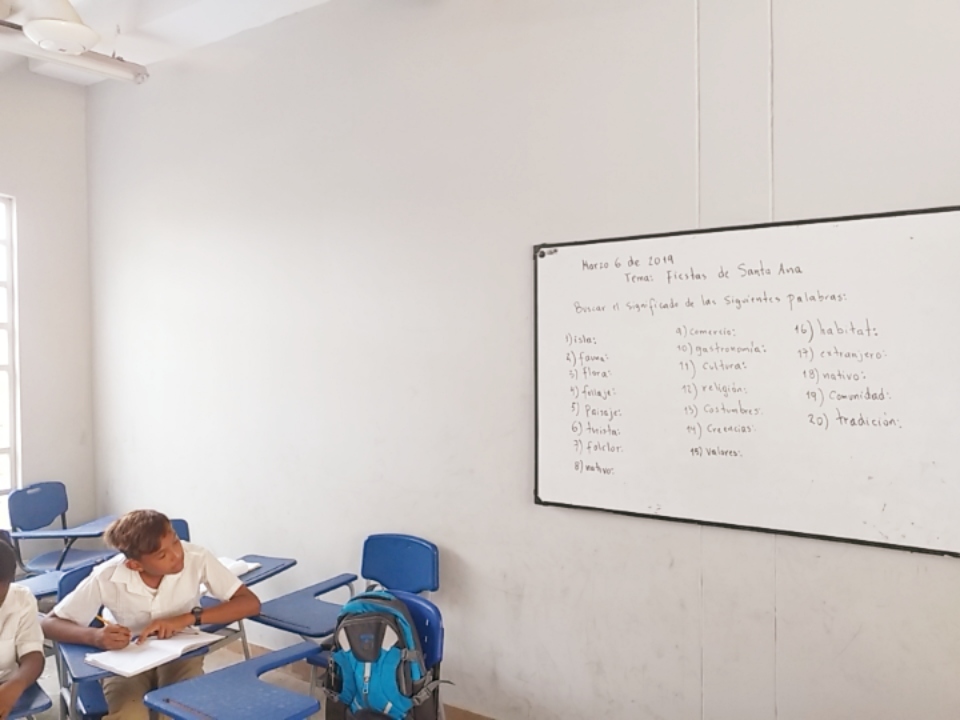 Marzo 6 de 2019
Tema: Fiestas de Santa Ana
Buscar el significado de las siguientes palabras:
1) isla:
2) fauna:
3) flora:
4) follaje:
5) Paisaje:
6) turista:
7) folclor:
8) nativo:
9) comercio:
10) gastronomía:
11) Cultura:
12) religión:
13) Costumbres:
14) Creencias:
15) Valores:
16) habitat:
17) extranjero:
18) nativo:
19) Comunidad:
20) tradición: